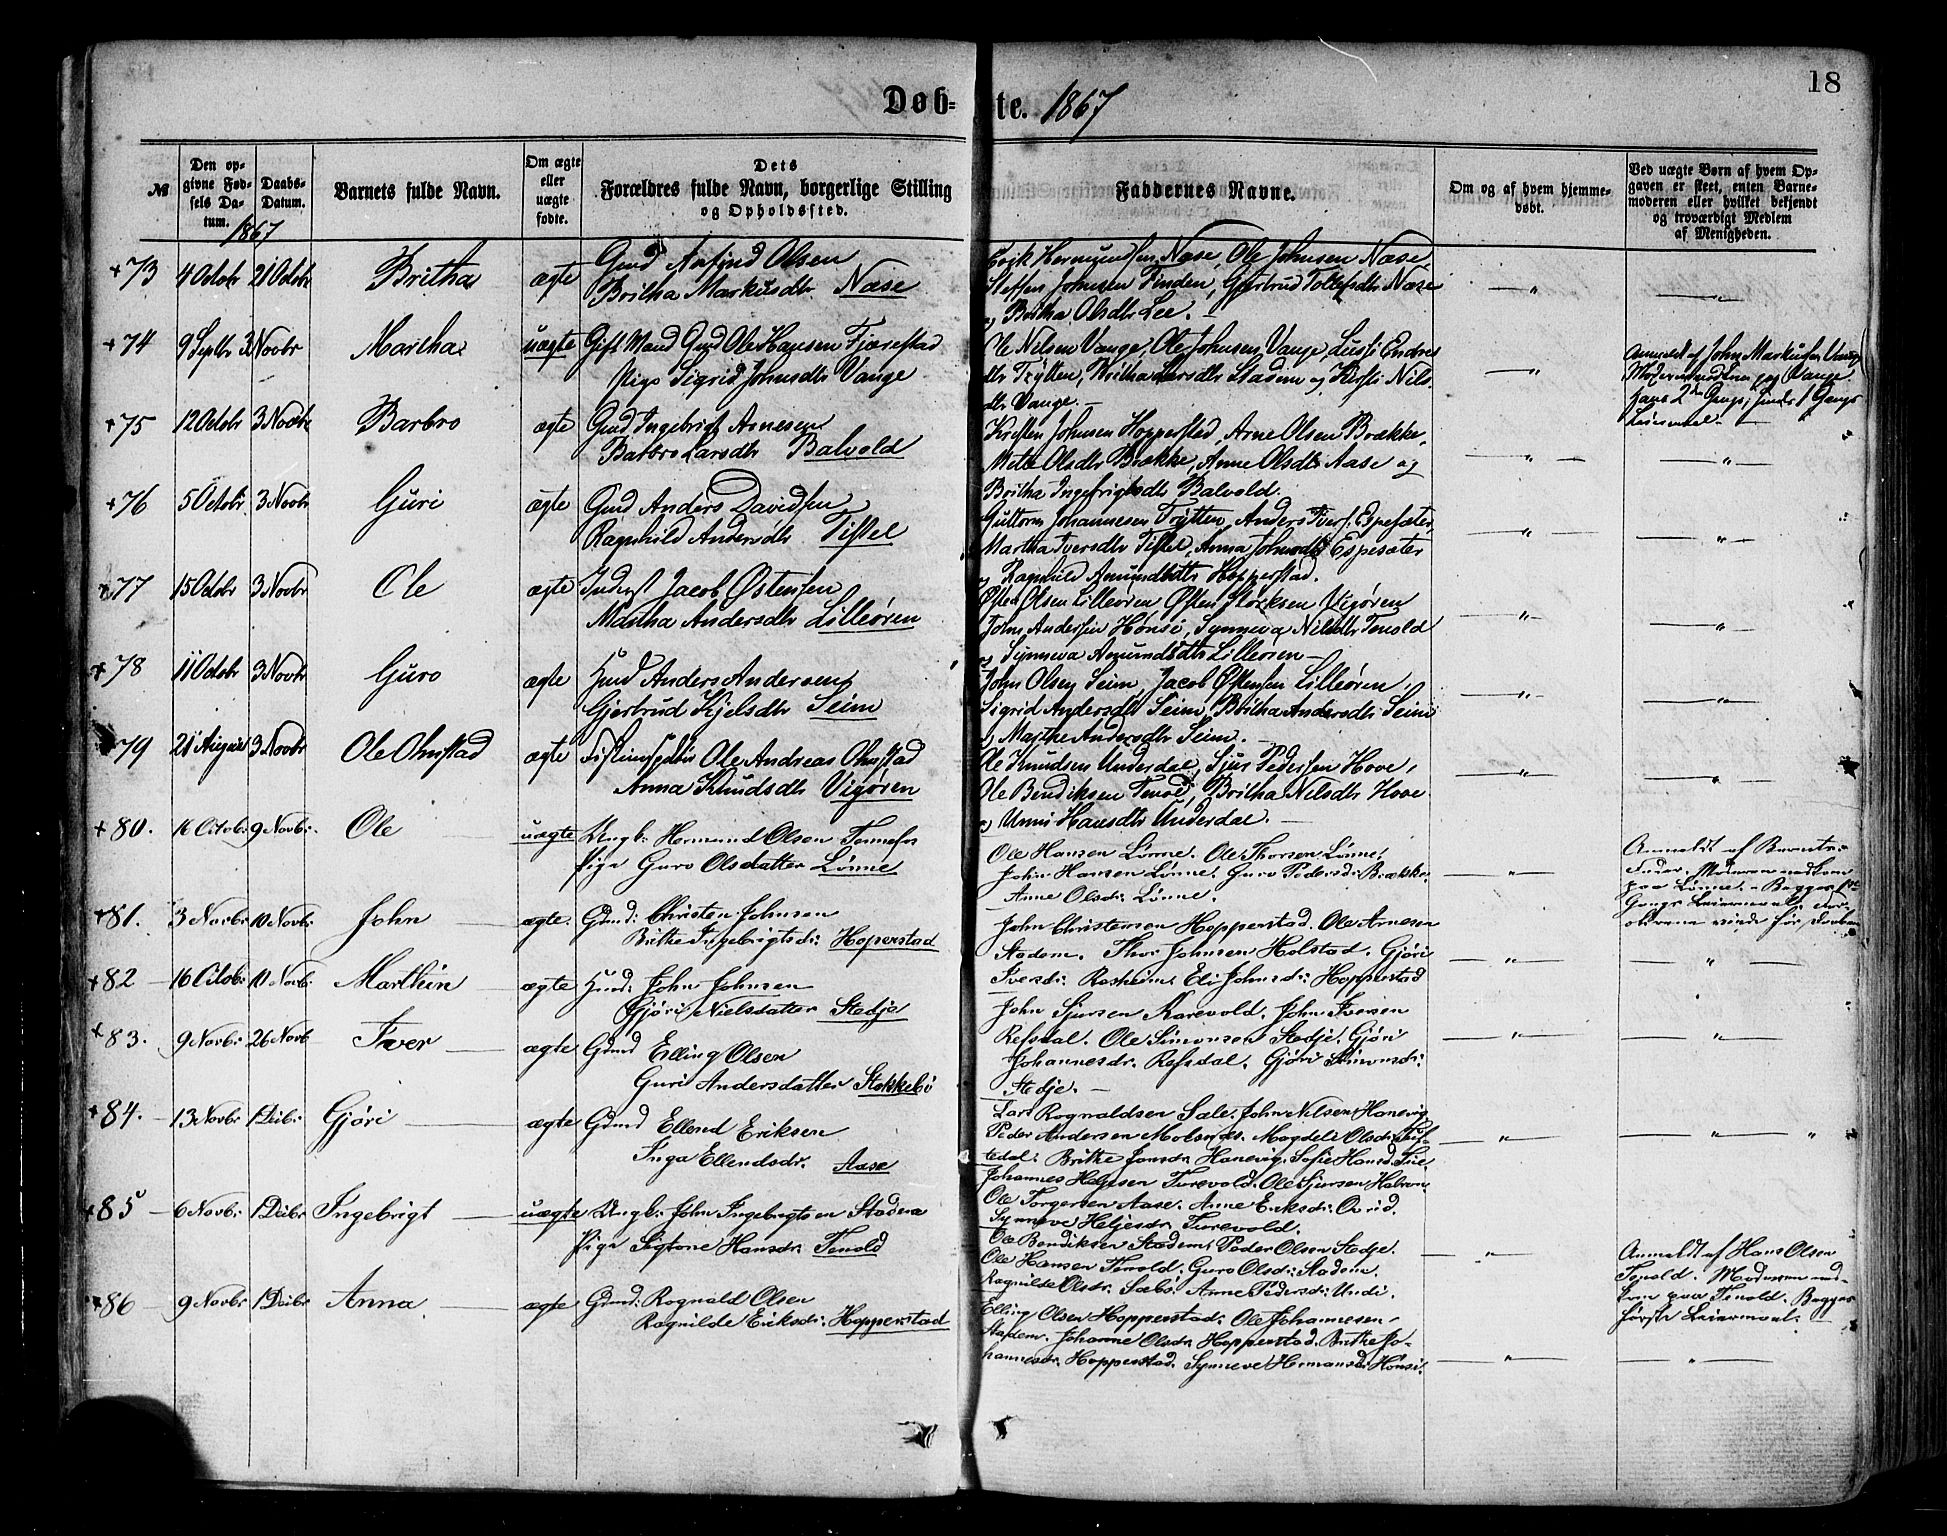 18
Døb- te. 1867
№
Den opgivne Fødsels Datum.
Daabs-Datum.
Barnets fulde Navn.
Om ægte eller uægte fødte.
Dets Forældres fulde Navn, borgerlige Stilling og Opholdssted.
Faddernes Navne.
Om og af hvem hjemmedøbt.
Ved uægte Børn af hvem Opgaven er skeet, enten Barnemoderen eller hvilket bekjendt og troværdigt Medlem af Menigheden.
1867
73 4 Octobr 21 Octobr Britha ægte Gmd Anfind Olsen
Britha Markusdtr Næse
Eirik Hermundsen Næse, Ole Johnsen Næse
Steffen Johnsen Finden, Gjertrud Tollefsdtr Næse
Britha Olsdtr Lee.
74 9 Septbr 3 Novbr Martha uægte Gift Mand Gmd Ole Hansen Fjærestad
Pige Sigrid Johnsdtr Vange
Ole Nilsen Vange, Ole Johnsen Vange, Lussi Endres
dtr Trytten, Britha Larsdtr Stadem og Kirsti Nils
dtr Vange.
Anmeldt af John Markusen Vange
Moderen nedkom paa Vange.
hans 2den Gangs, hendes 1 Gangs
Leiermaal
75 12 Octobr 3 Novbr Barbro ægte Gmd Ingebrigt Arnesen
Barbro Larsdtr Balvold
Kristen Johnsen Hopperstad, Arne Olsen Brække,
Mette Olsdtr Brække, Anne Olsdtr Aase og
Britha Ingebrigtsdtr Balvold.
76 5 Octobr 3 Novbr Guri ægte Gmd Anders Davidsen
Ragnhild Andersdtr Tistel
Guttorm Johannesen Trytten, Anders Ivers. Espesæter,
Martha Iversdtr Tistel, Anna Johnsdtr Espesæter
Ragnhild Amundsdtr Hopperstad.
77 15 Octobr 3 Novbr Ole ægte Inderst Jacob Østensen
Martha Andersdtr Lilleøren
Østen Olsen Lilleøren, Østen Vigøren
John Andersen Hønsi, Synneva Nilsdtr Tenold
Synneva Amundsdtr Lilleøren
78 11 Octobr 3 Novbr Guro ægte Hmd Anders Andersen
Gjertrud Kjelsdtr Seim
John Olsen Seim, Jacob Østensen Lilleøren,
Sigrid Andersdtr Seim, Britha Andersdtr Seim
Marthe Andersdtr Seim.
79 21 August 3 Novbr Ole Ohnstad ægte Ole Andreas Ohnstad
Anna Knudsdtr Vigøren
Ole Knudsen Underdal, Sjur Pedersen Hove,
Ole Bendiksen Tenold, Britha Nilsdtr Hove
Unni Hansdtr Underdal.
80. 16 Octobr 9 Novbr. Ole uægte Ungk. Hermund Olsen Tennefos
Pige Guro Olsdatter Lønne
Ole Hansen Lønne. Ole Thorsen Lønne,
John Hansen Lønne. Guro Pedersdr. Brække.
Anne Olsdr. Lønne.
Anmeldt af Barnets
Fader. Moderen nedkom
paa Lønne. Begges 1ste
Gangs Leiermaal.
81. 3 Novbr 10 Novbr John ægte. Gmd: Christen Johnsen
Brithe Ingebrigtsdr. Hoperstad
John Christensen Hopperstad. Ole Arnesen
Stadem. Thor Johnsen Holstad. Gjøri
Iversdr. Rosheim. Eli Johnsdr. Hopperstad
82 16 Octobr. 11 Novbr. Marthin ægte Hmd: John Johnsen
Gjøri Nielsdatter Stedje
John Sjursen Karevold. John Iversen
Refsdal. Ole Simonsen Stedje. Gjøri
Johannesdr. Refsdal. Gjøri Simonsdr.
Stedje.
83. 9 Novbr. 26 Novb Iver ægte Gmd Elling Olsen
Guri Andersdatter Stokkebø
Lars Rognaldsen Sæle. John Nilsen Hanevig
Peder Andersen Molsnæs. Magdeli Olsdr.
Brithe Jonsdr. Hanevig. Sofie Hansd.
84. 13 Novbr 1 Decbr. Gjøri ægte Gmd Ellend Eriksen
Inga Ellendsdr. Aase
Johannes Heljesen Turevold. Ole Sjursen
Ole Torgersen Aase. Anne Eriksdr. Qvrid.
Synneve Heljesdr. Turevold.
85 6 Novbr. 1 Decbr Ingebrigt uægte Ungk. John Ingebrigtsen Stadem
Pige Sigtone Hansdr. Tenold
Ole Bendiksen Stadem. Peder Olsen Stedje.
Ole Hansen Tenold. Guro Olsdr. Stadem.
Ragnilde Olsdr. Sæbø. Anne Pedersdr. Undi.
Anmeldt af Hans Olsen
Tenold. Moderen ned-
kom paa Tenold. Begges
første Leiermaal.
86 9 Novbr 1 Decbr Anna ægte Gmd: Rognald Olsen
Ragnilde Eriksdr. Hopperstad
Elling Olsen Hopperstad. Ole Johannesen,
Stadem. Johanne Olsdr. Hopperstad. Brithe Jo-
hannesdr. Hopperstad. Synneve Hermansdr. Hønsi.